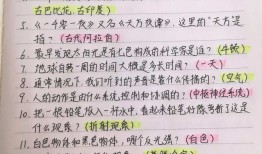 古巴比伦,古印度)
5、《一千零一夜》又名《天方夜谭》,这里的“天方”是
指?(古代阿拉伯)
6、最早发现太阳光是有七色构成的科学家是谁?(牛顿)
7、地球自转一周的时间大概是多长时间?(一天)
8、通常情况下,我们听到的声音是靠什么传播的?(空气)
9、人的动作是由什么系统控制和协调的?(中枢神经系统)
10、把一根铅笔放入一杯水中,看起来铅笔好像弯折了这是
什么现象?(折射现象)
11、白色物体和黑色物体,哪个反光强?(白色)